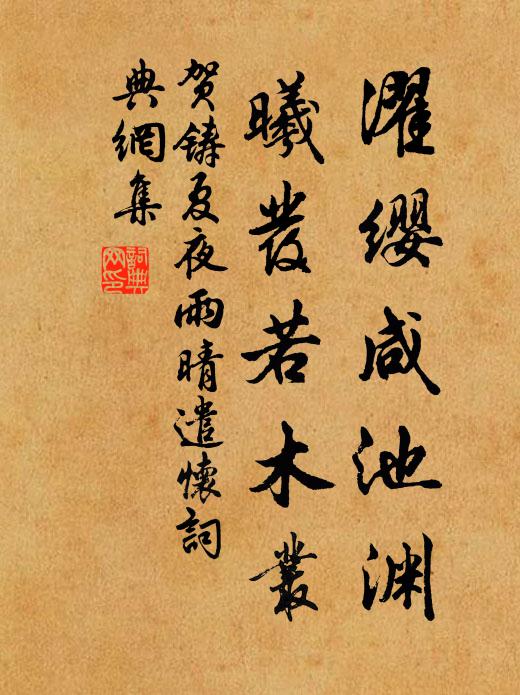 濯缨咸池渊
曦发若木丛
贺铸夏夜雨晴遣怀词
典網集
詞典網印